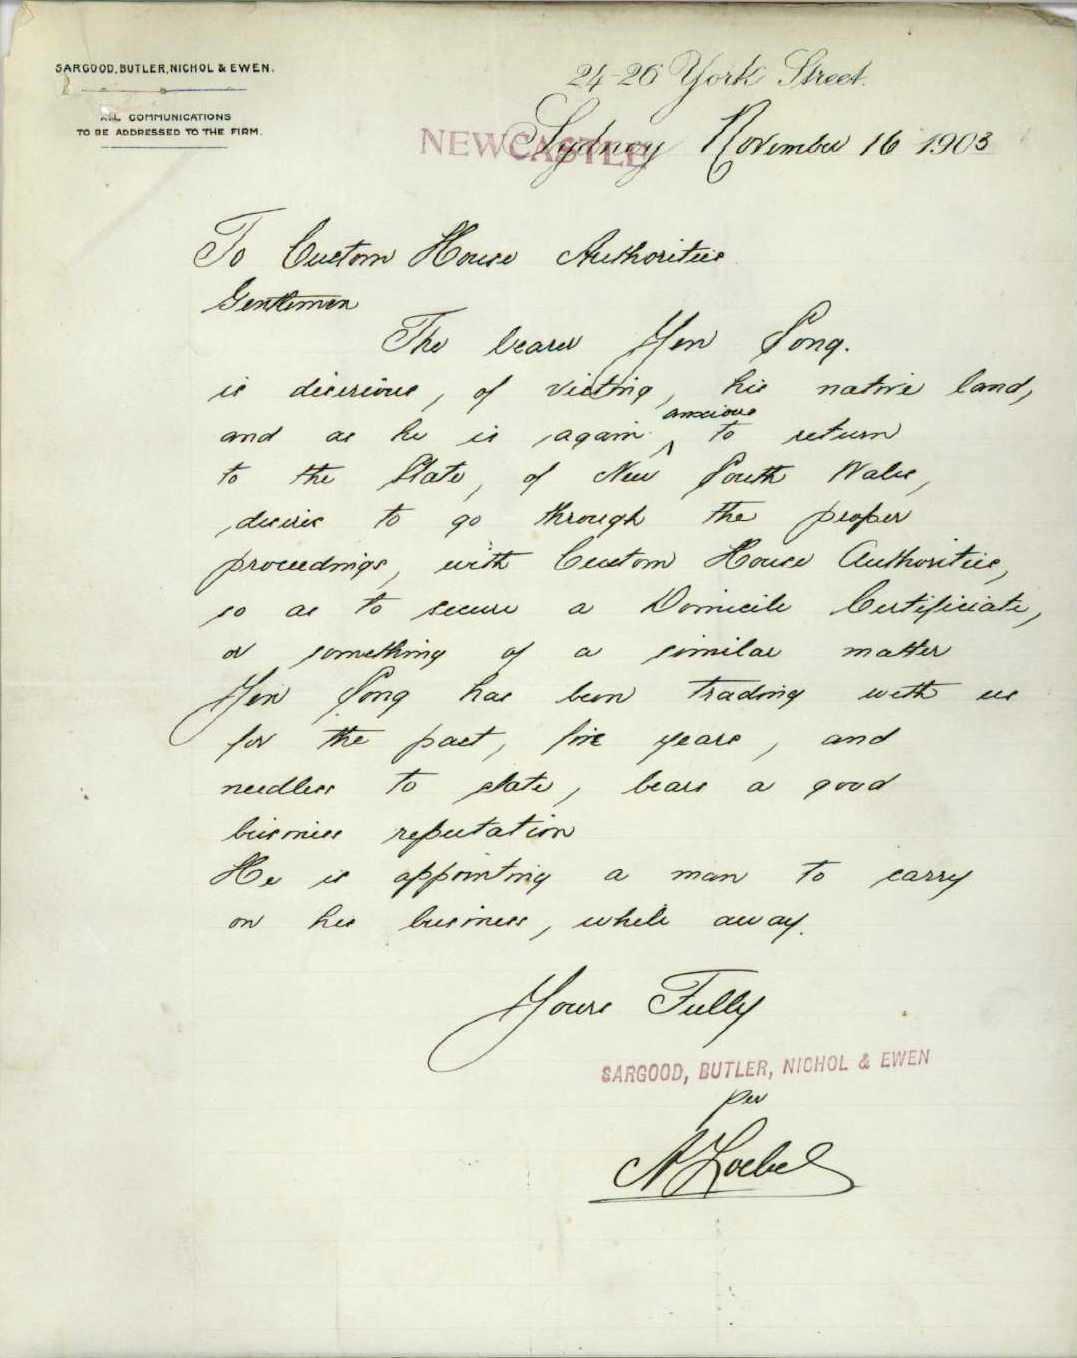 SARGOOD, BUTLER, NICHOL & EWEN.
ALL COMMUNICATIONS
TO BE ADDRESSED TO THE FIRM.
24-26 York Street.
Sydney November 16 1903
NEWCASTLE
To Custom House Authorities
Gentlemen
The bearer Yen Song.
is desirious, of visting, his native land,
anxious
and as he is again ^ to return
to the State, of New South Wales,
desires to go through the proper
proceedings, with Custom House Authorities,
so as to secure a Domicile Certificiate,
or something of a similar matter
Yen Song has been trading with us
for the past, five years, and
needless to state, bears a good
business reputation
He is appointing a man to carry
on his business, while away.
Yours Fully
SARGOOD, BUTLER, NICHOL & EWEN
per
A Loebel